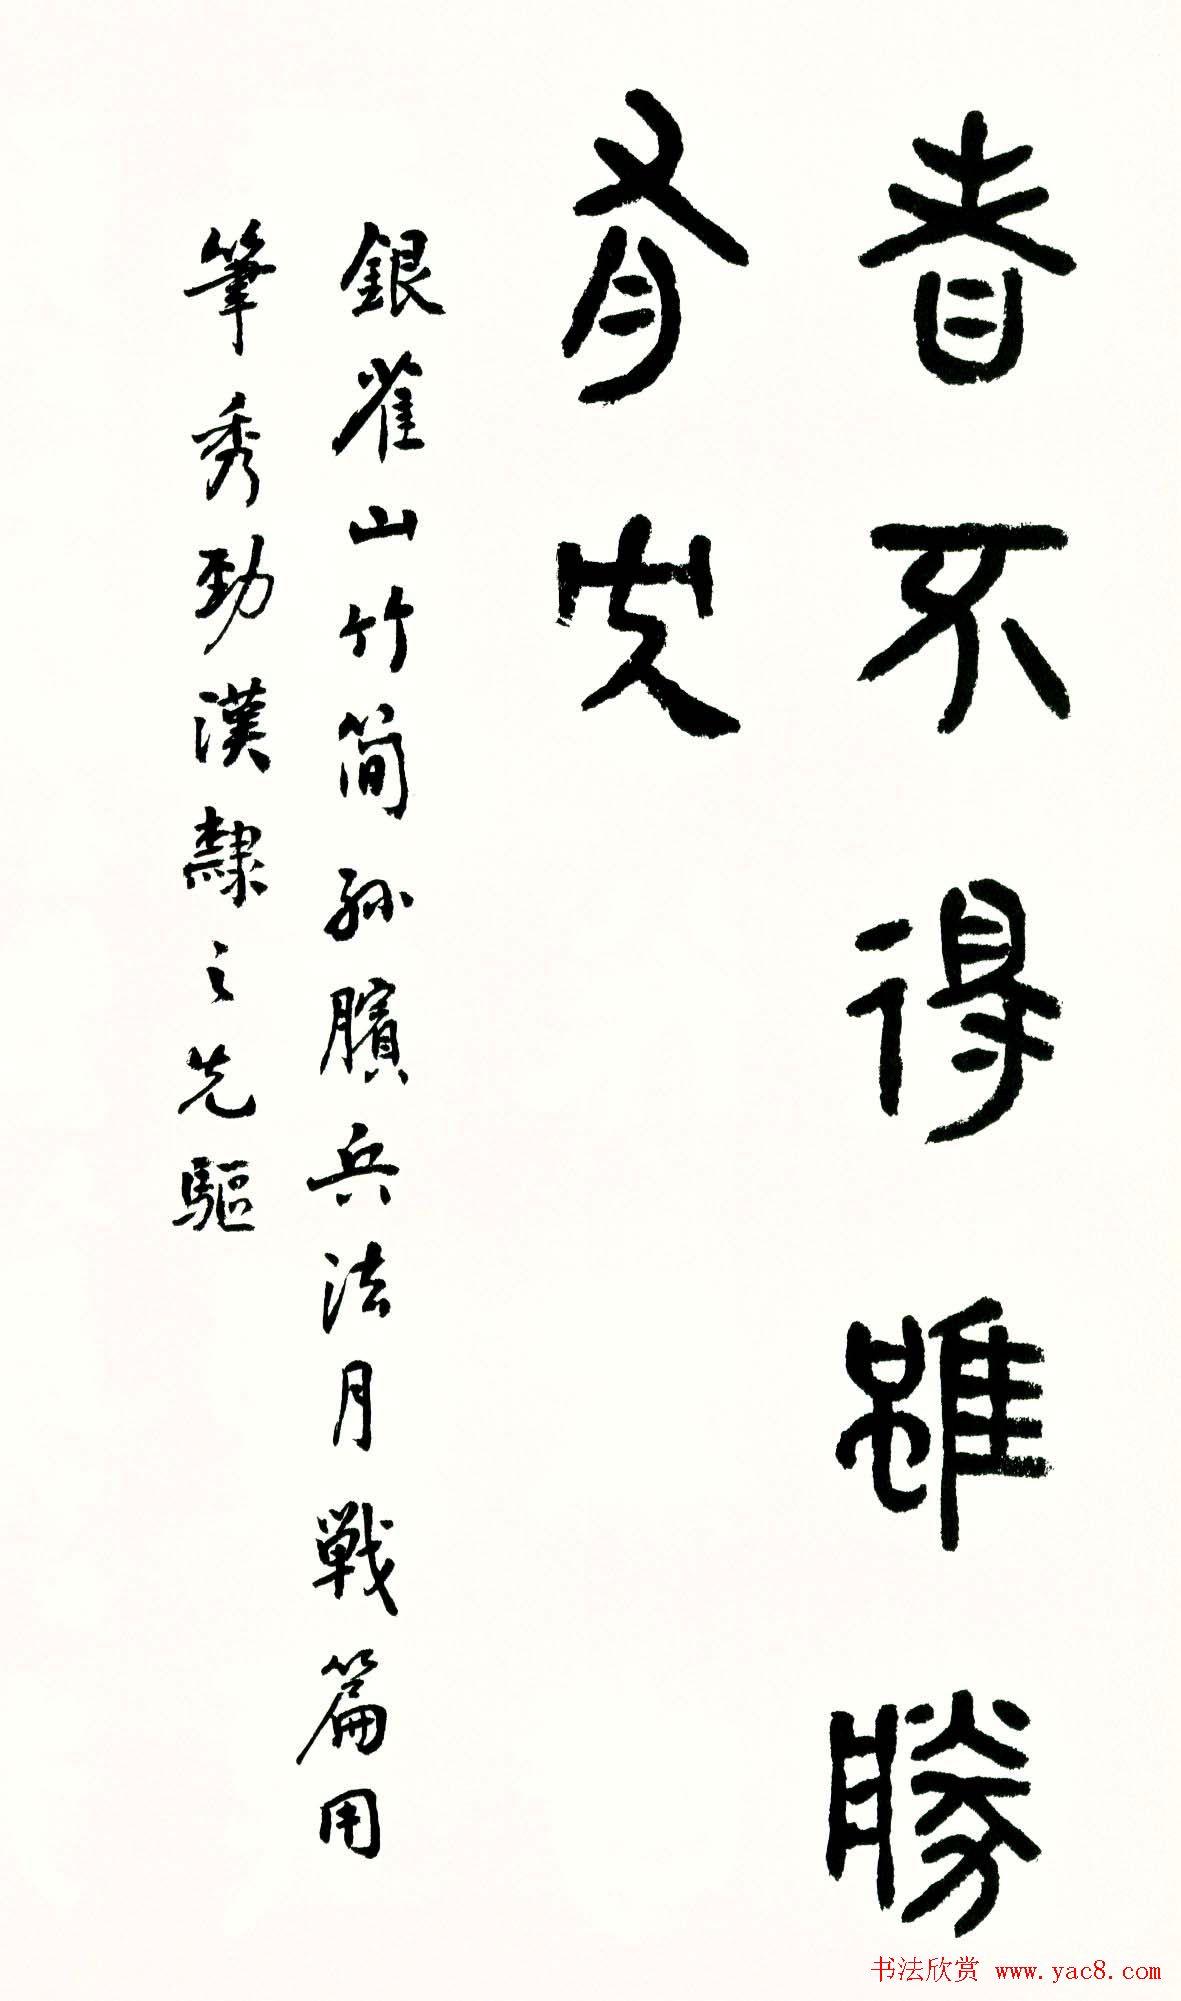 者不得雖勝
有央
銀雀山竹简孫臏兵法月戰篇用
筆秀勁漢隸之先驅
书法欣赏 www.yac8.com